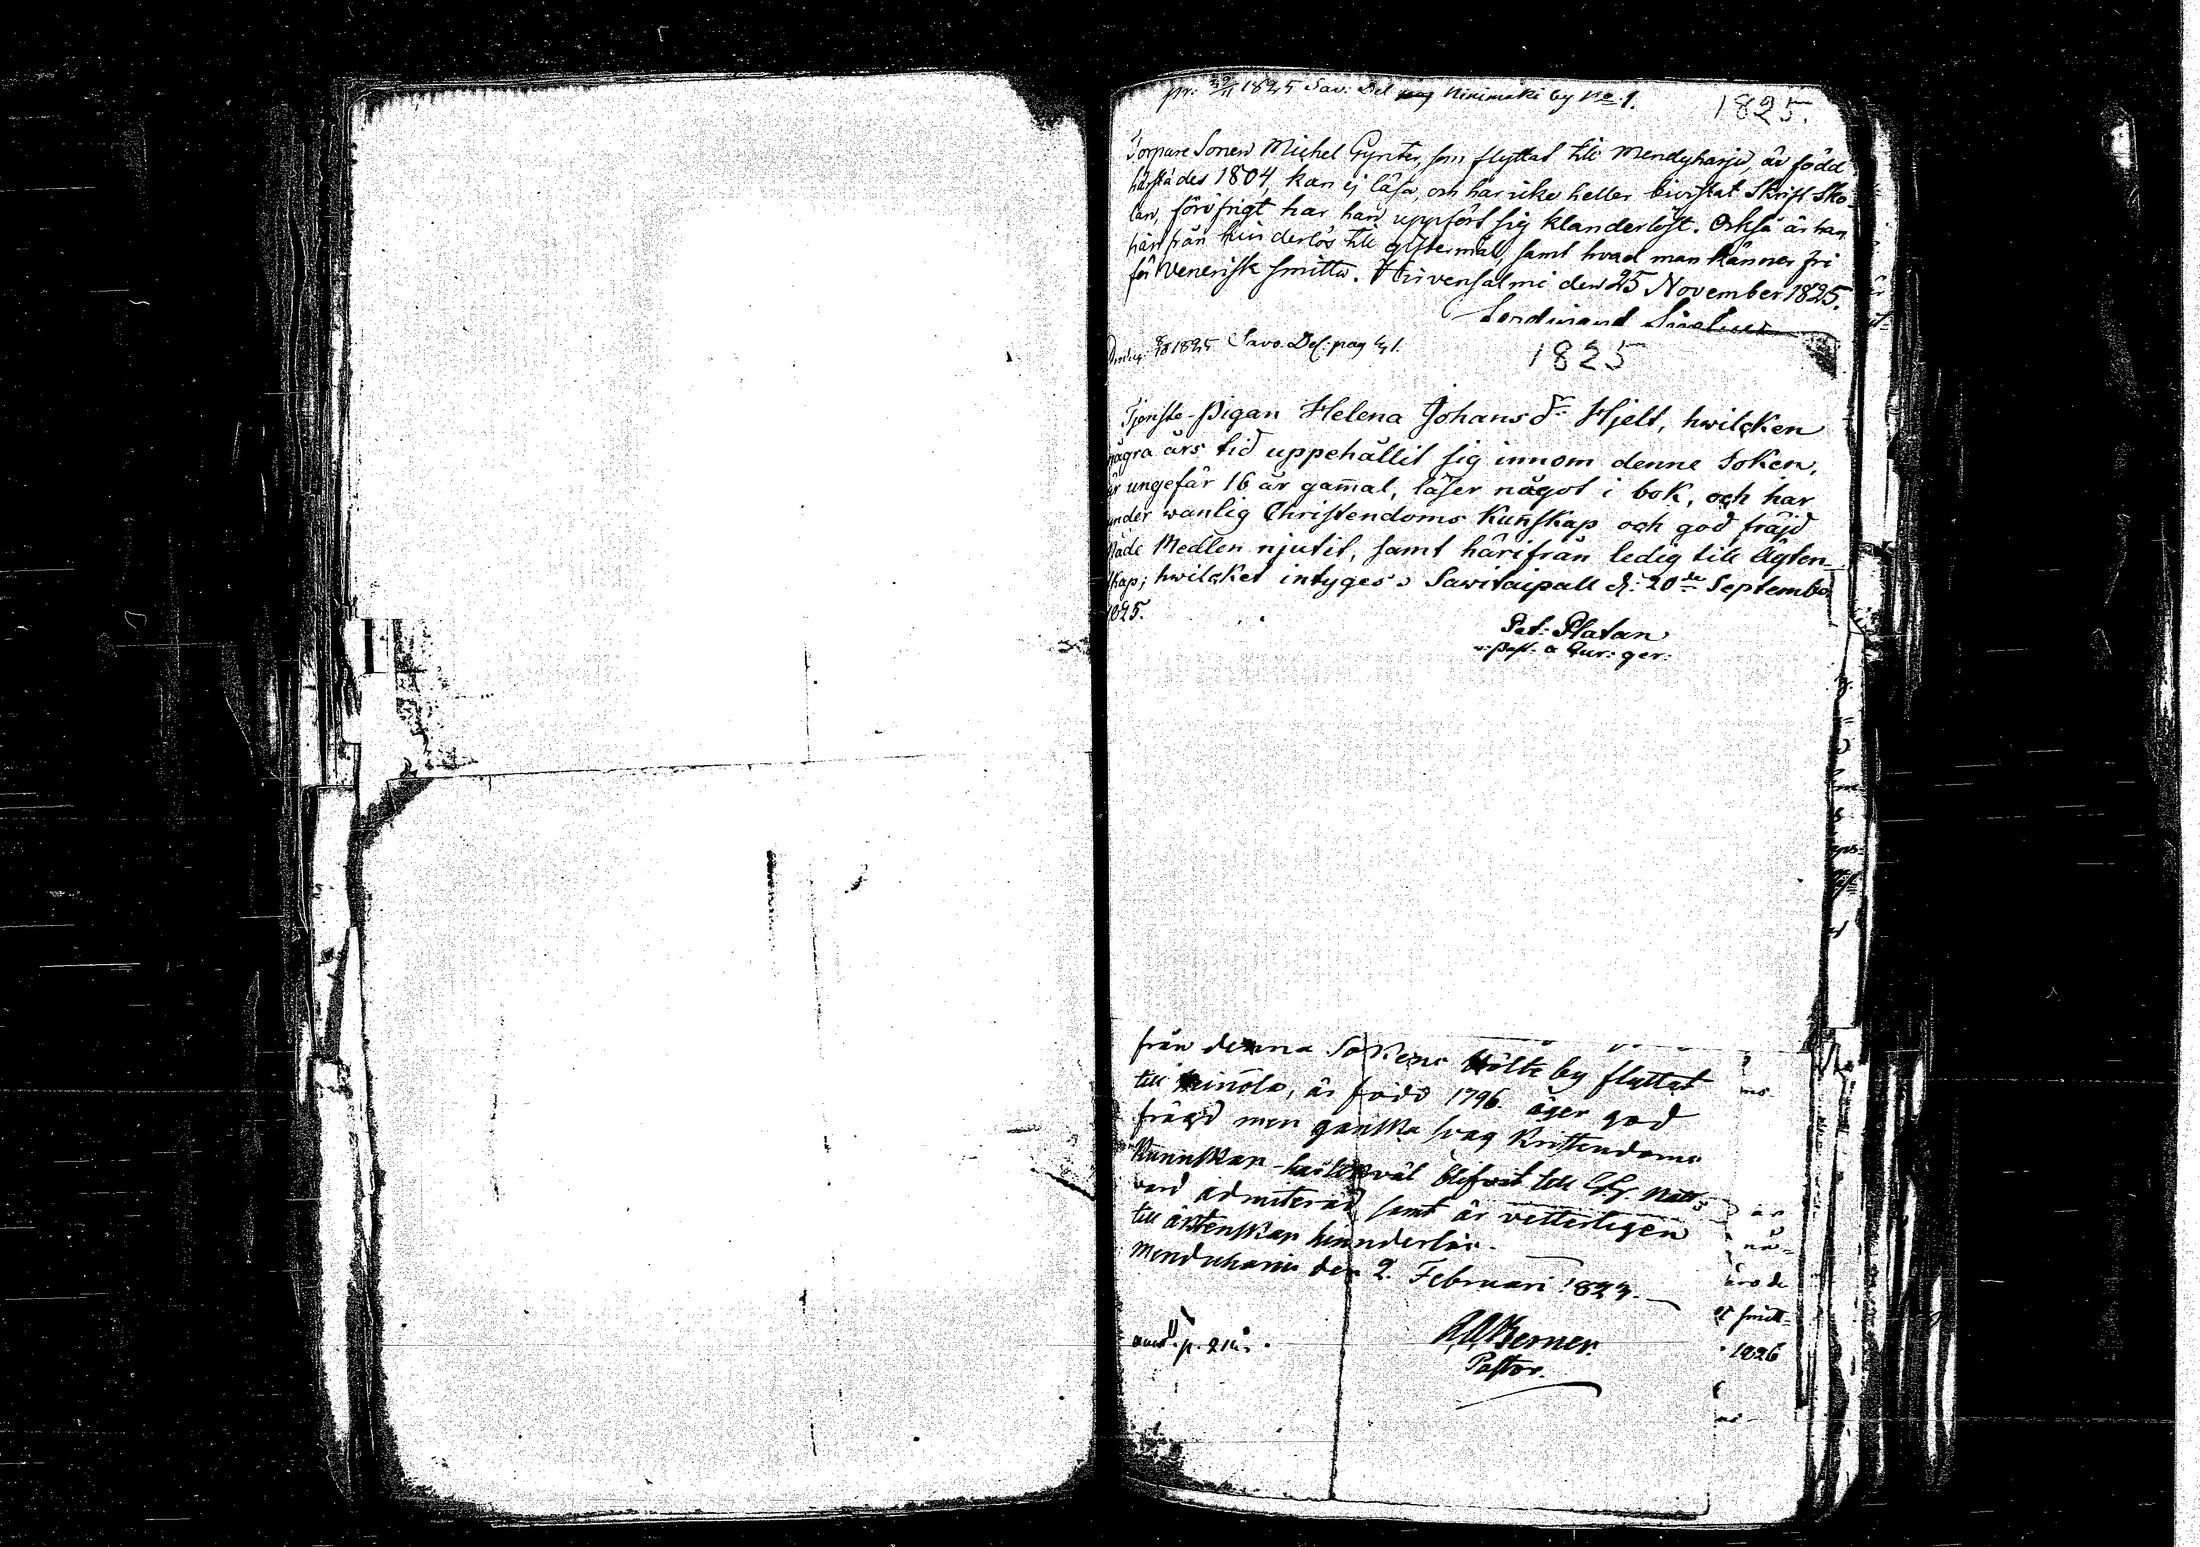 pr. 30/11 1825 Sav: Del pag Ninimäki by No 1.
1825.
Torpare Sonen Michel Gynter, som flyttat till Mendyharju, är född
härstädes 1804, kan ej läsa, och har icke heller bivistat Skrift Sko-
lan, föröfrigt har han uppfört sig klanderlöst. Också är han
härifrån hinderlös till giftermål, samt hvad man känner fri
för Venerisk smitta. Hirvensalmi den 25 November 1825.
Ferdinand
1825 Savo. Del. pag
1825
Tjenste-Pigan Helena Johansdr Hjelt, hwilcken
några års tid uppehållit sig innom denne Soken,
är ungefär 16 år gam̄al, läser något i bok, och har
under wanlig Christendoms Kun̄skap och god fräjd
Nåde Medlen njutit, samt härifrån ledig till Ägten-
skap; hwilcket intyges. Sawitaipall d: 20de September
1825.
Pet: Platan
v: Past. a Cur: ger:
från denna Sokens by flyttat
till Heinola, är född 1796. äger god
fräjd men ganska svag Kristendoms
Kunnskap - har likväl blifvit till HH. Natt-
vard admitterad samt är vetterligen
till äktenskap hinnderlös.
Mendyharju den 2. Februari 182
Berner.
Pastor.
är
nå-
äro de
smitt-
1826